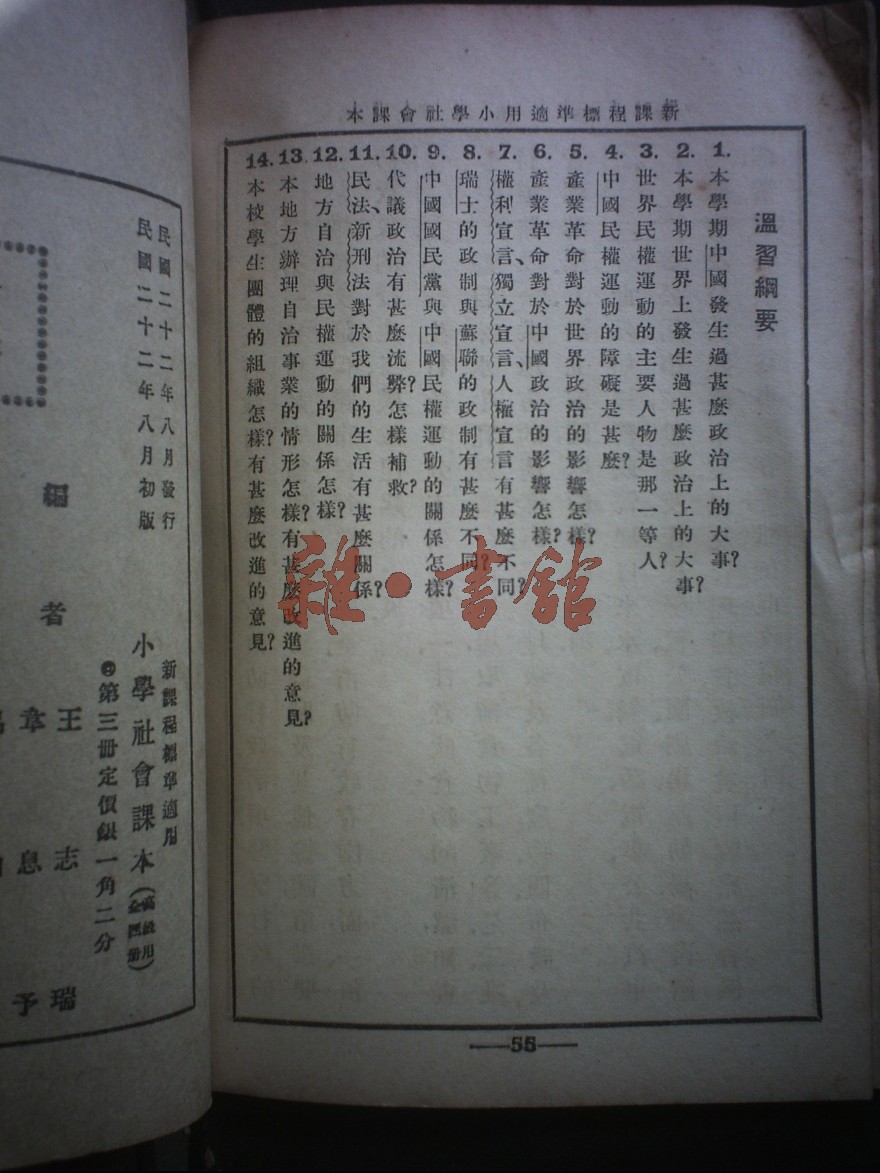 新課程標準適用小學社會課本
溫習綱要
1. 本學期中國發生過甚麼政治上的大事?
2. 本學期世界上發生過甚麼政治上的大事?
3. 世界民權運動的主要人物是那一等人?
4. 中國民權運動的障礙是甚麼?
5. 產業革命對於世界政治的影響怎樣?
6. 產業革命對於中國政治的影響怎樣?
7. 權利宣言、獨立宣言、人權宣言有甚麼不同?
8. 瑞士的政制與蘇聯的政制有甚麼不同?
9. 中國國民黨與中國民權運動的關係怎樣?
10. 代議政治有甚麼流弊?怎樣補救?
11. 民法、新刑法對於我們的生活有甚麼關係?
12. 地方自治與民權運動的關係怎樣?
13. 本地方辦理自治事業的情形怎樣?有甚麼改進的意見?
14. 本校學生團體的組織怎樣?有甚麼改進的意見?
55
雜·書館
民國二十二年八月發行
民國二十二年八月初版
新課程標準適用
小學社會課本(高級用全四册)
第三冊定價銀一角二分
編者
王志瑞
章息予